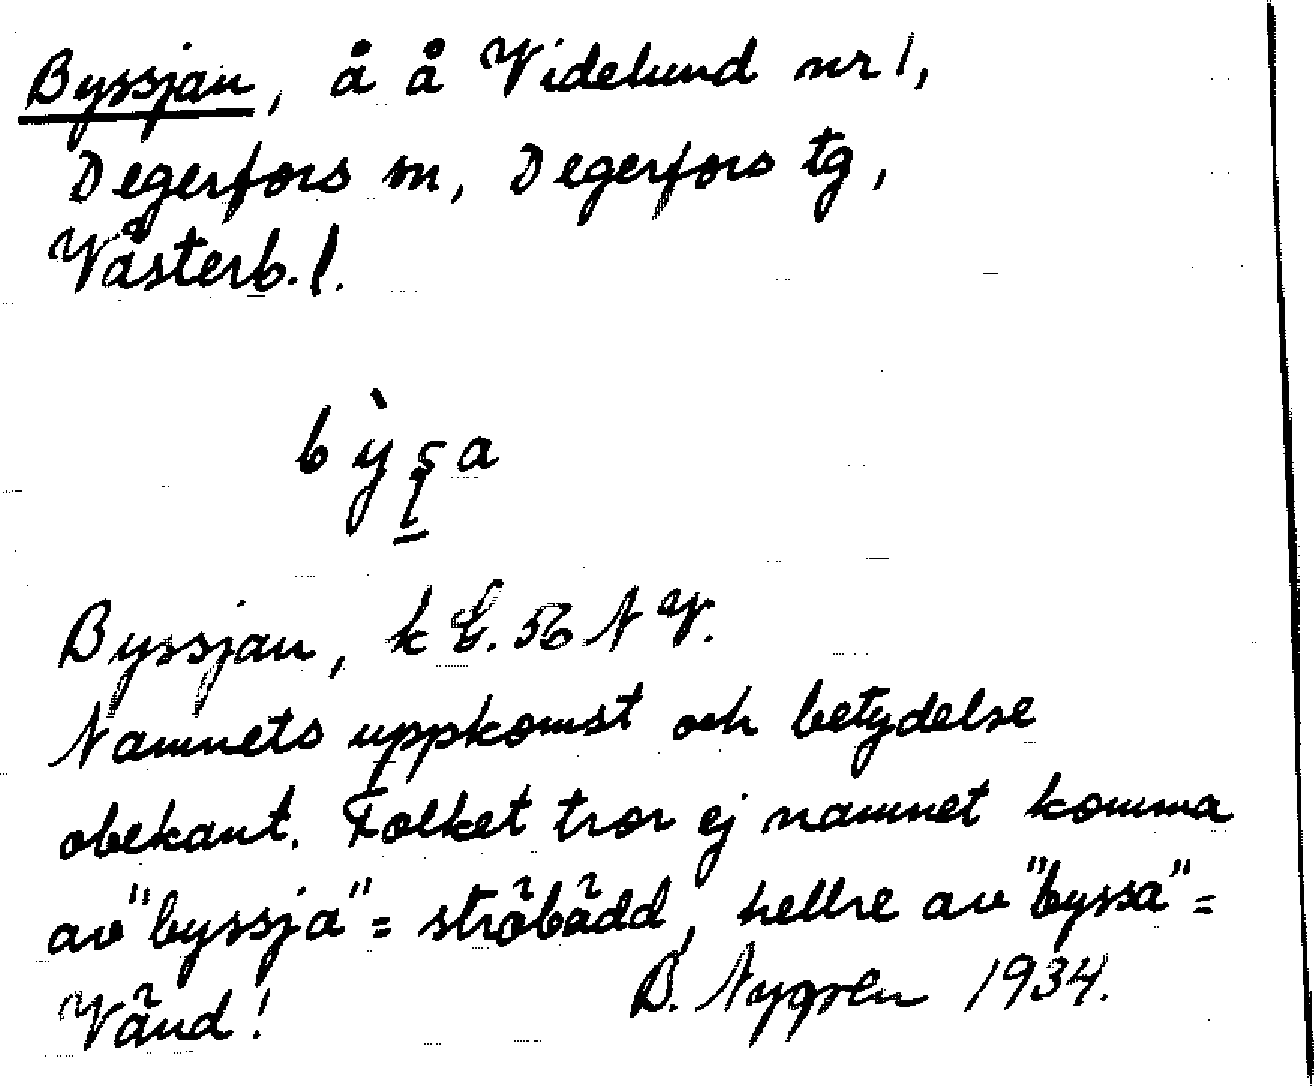 Byssjan, å å Videlund nr 1,
Degerfors sn, Degerfors tg,
Västerb. l.
Byssjan, k E. 56 N V.
Namnets uppkomst och betydelse
obekant. Folket tror ej namnet komma
av "byssja" = ströbädd, hellre av "byssa" =
Vänd! B. Nygren 1934.